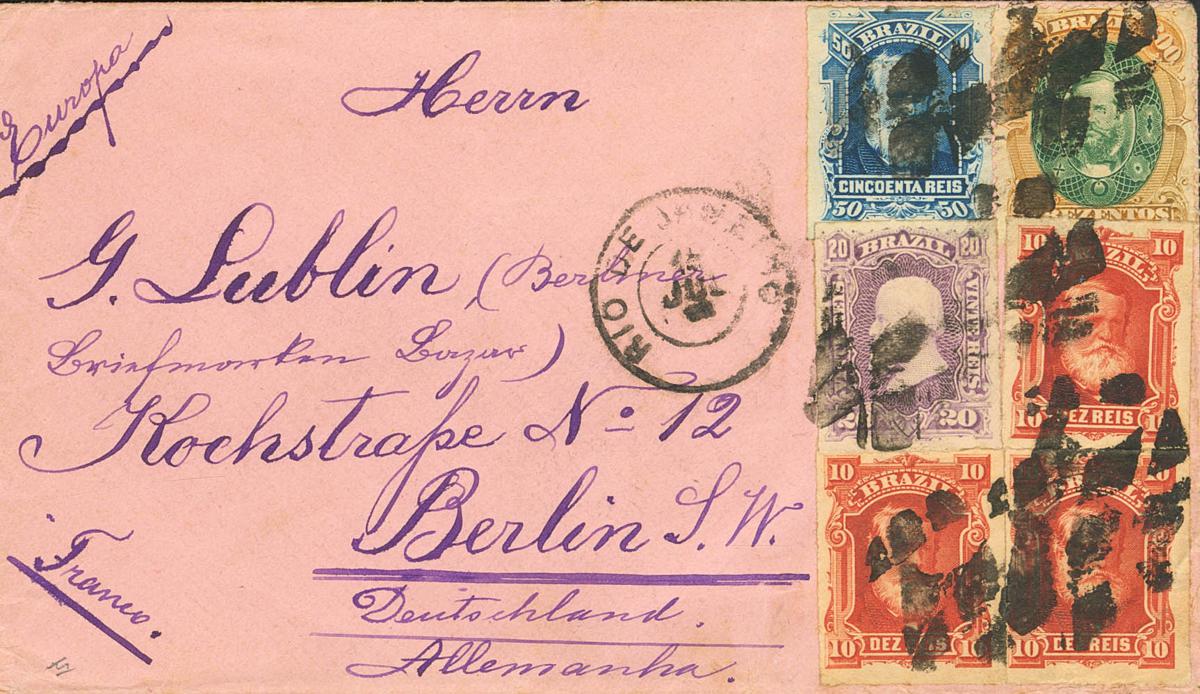 Europa
Herrn
G. Lublin (Berliner
Briefmarken Bazar)
Kochstraße No 12
Berlin S. W.
Deutschland.
Allemanha.
Franco.
RIO DE JANEIRO
JUL
50
BRAZIL
CINCOENTA REIS
50 50
BRAZIL
00
20 BRAZIL 20
VINTE REIS
20
10 10
DEZ REIS
10 10
10 10
BRAZIL
DEZ REIS
10 10
10
BRAZIL
DEZ REIS
10 10